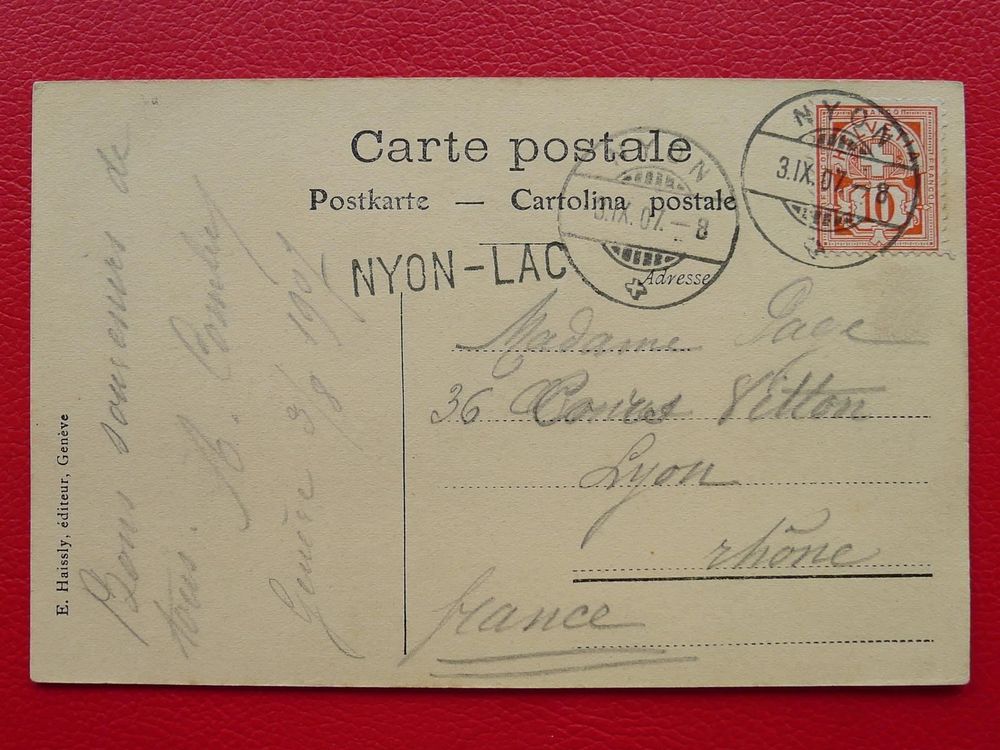 Carte postale
Postkarte — Cartolina postale
NYON-LAC
NYON
3.IX.07.-8
NYON
3.IX.07.-8
FRANCO
10
Adresse
Madame Page
36 Cours Vitton
Lyon
rhône
france
E. Haissly, éditeur, Genève
Bons souvenirs de
tous.
Genève 3/8 1907